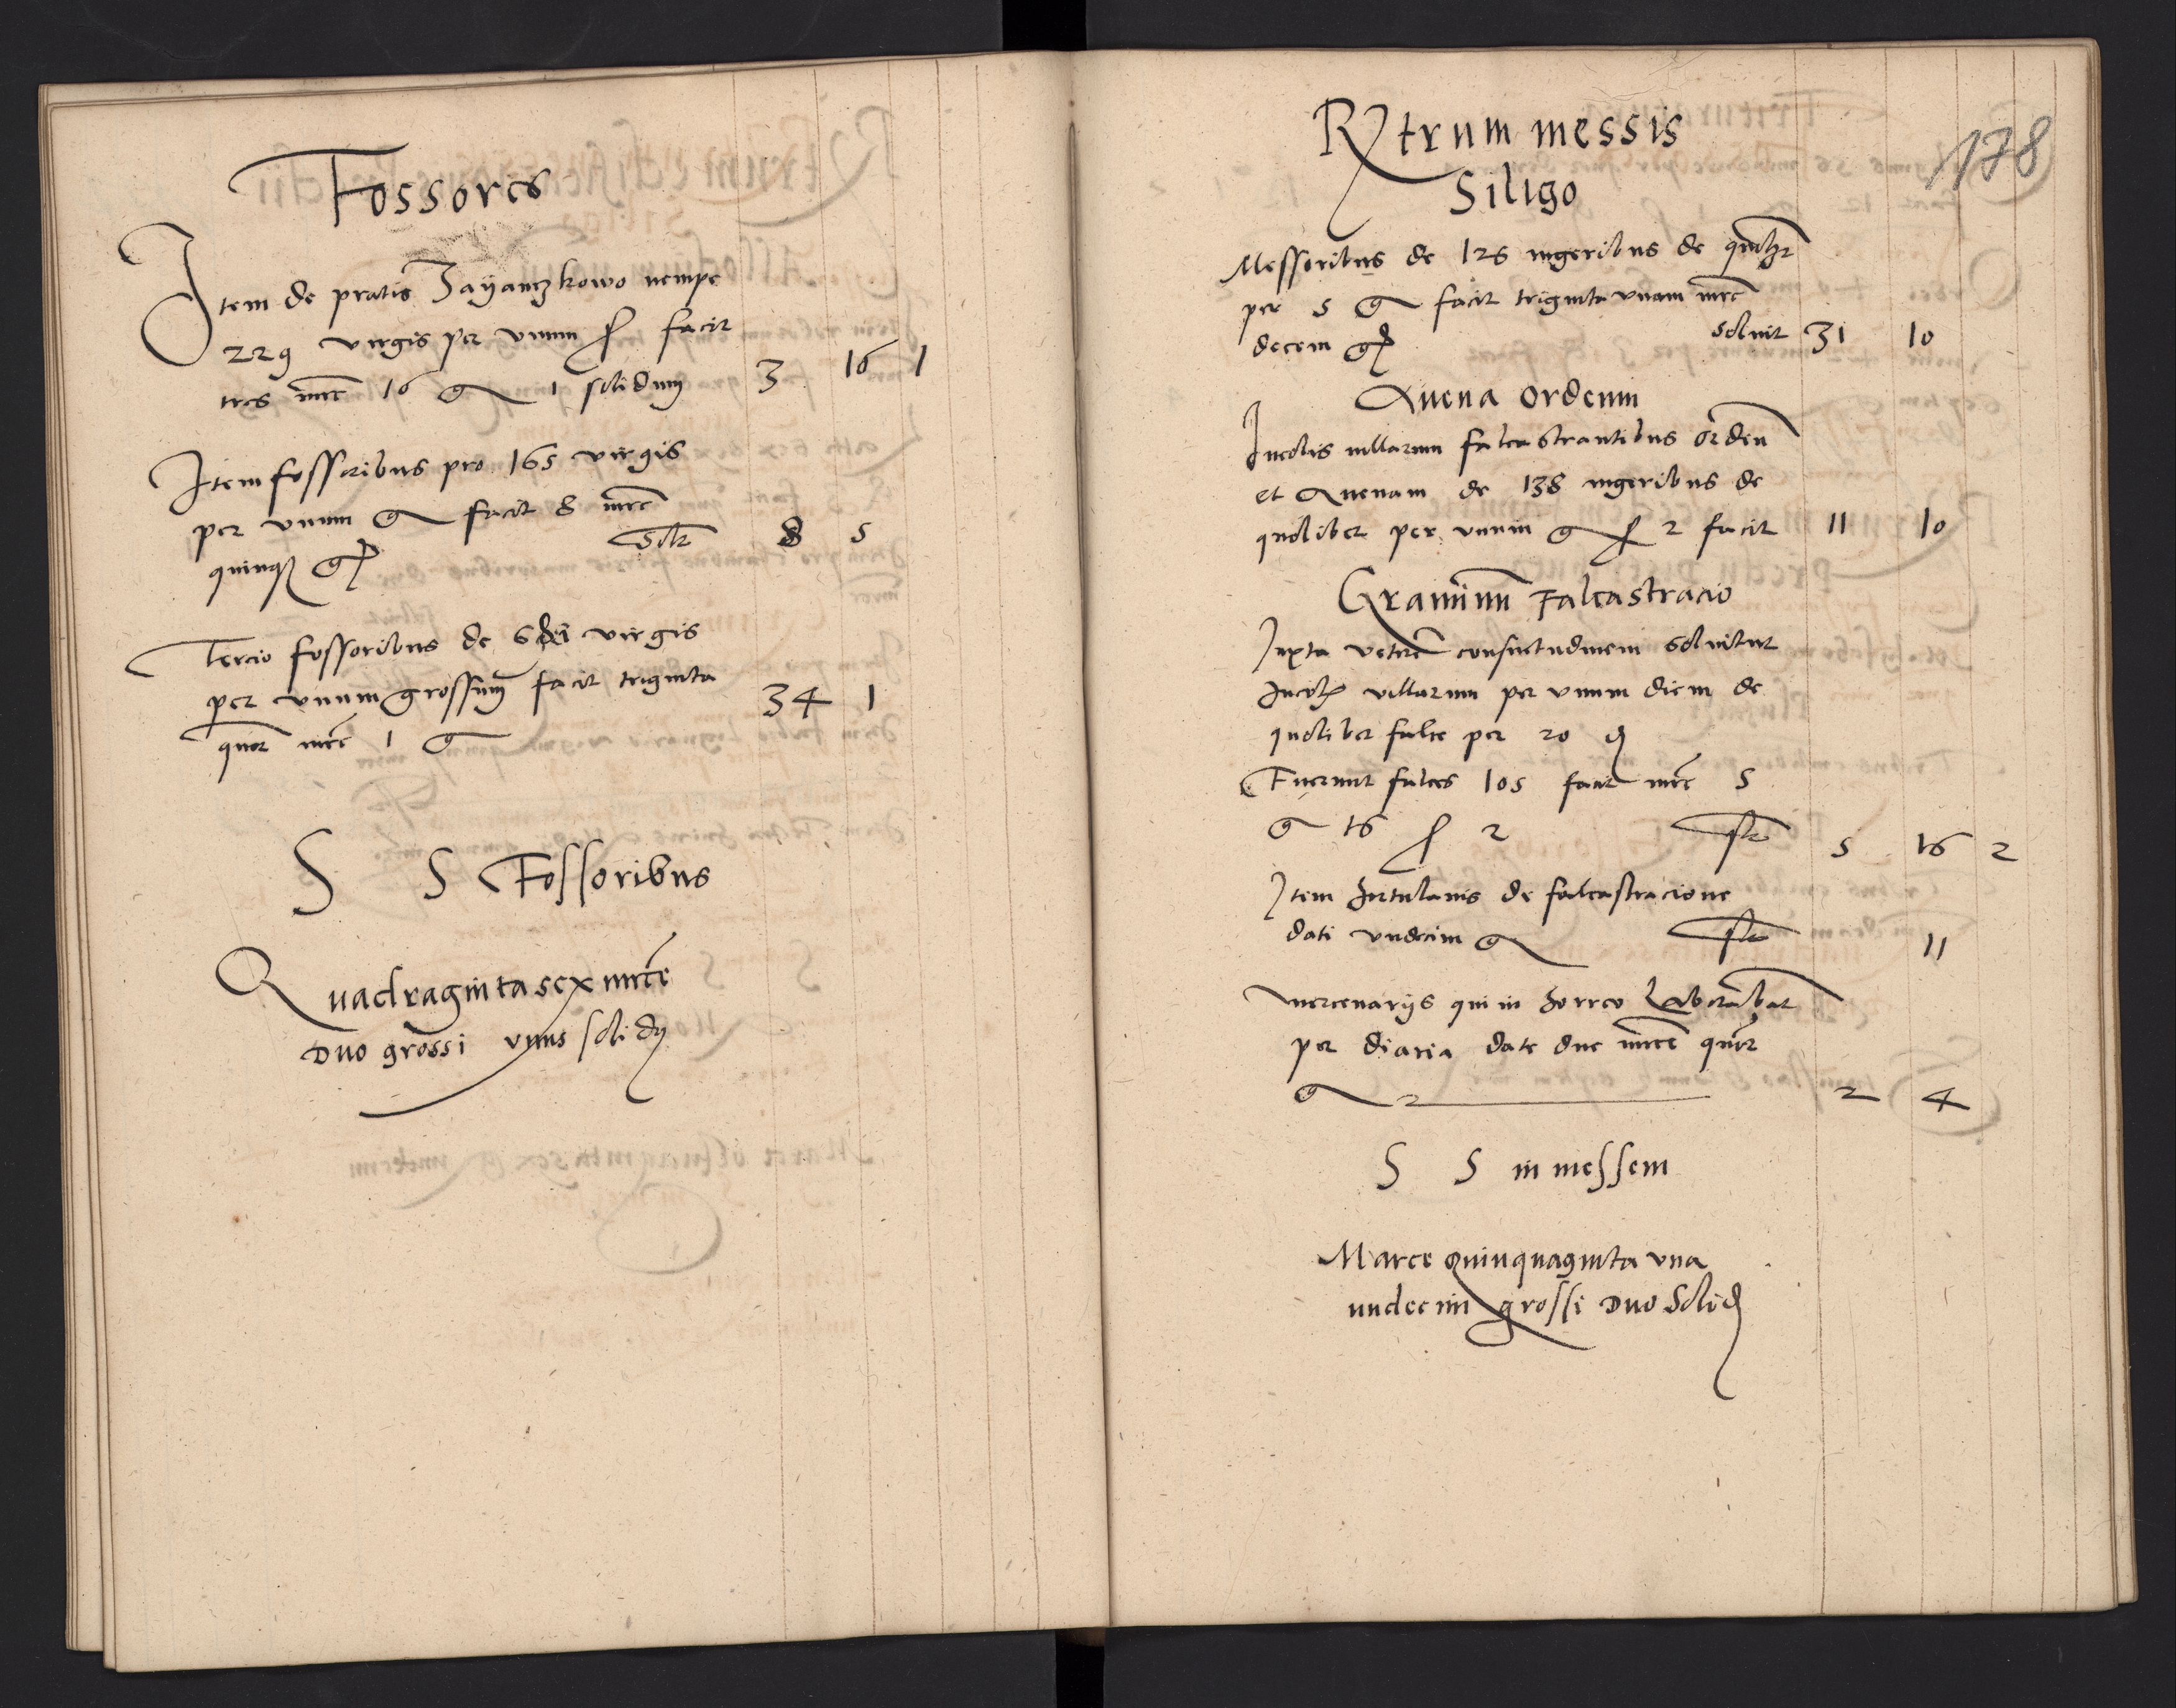 Fossores
Item de pratis Zayanczkowo nempe
229 virgis per unum ß facit
tres mrc 16 g 1 solidum 3 16 1
Item fossoribus pro 165 virgis
per unum g facit 8 mrc
quinq g solt 8 5
Tercio fossoribus de 681 virgis
per unum grossum facit triginta
quor mrc 1 g 34 1
S S Fossoribus
Quadraginta sex mrce
Duo grossi unus solidy
178
Rptrum messis
Siligo
Messoribus de 126 iugeribus de quolzt
per 5 g facit triginta unam mrc
decem g soluit 31 10
Auena Ordeum
Incolis villarum falcastrantibus Ordeu
et Auenam de 138 iugeribus de
quolibet per unum g ß 2 facit 11 10
Graminum Falcastracio
Juxta veterē consuetudinem soluitur
Incol villarum per unum diem de
quolibet falce per 20 d
Fuerunt falces 105 facit mrc 5
g 16 ß 2 5 16 2
Item hortulanis de falcastracione
dati undecim g 11
mercenarijs qui in horreo Laborabat
per diaria date due mrce quor
g 2 4
S S in messem
Marce quinquaginta una
undecim grossi Duo Solid